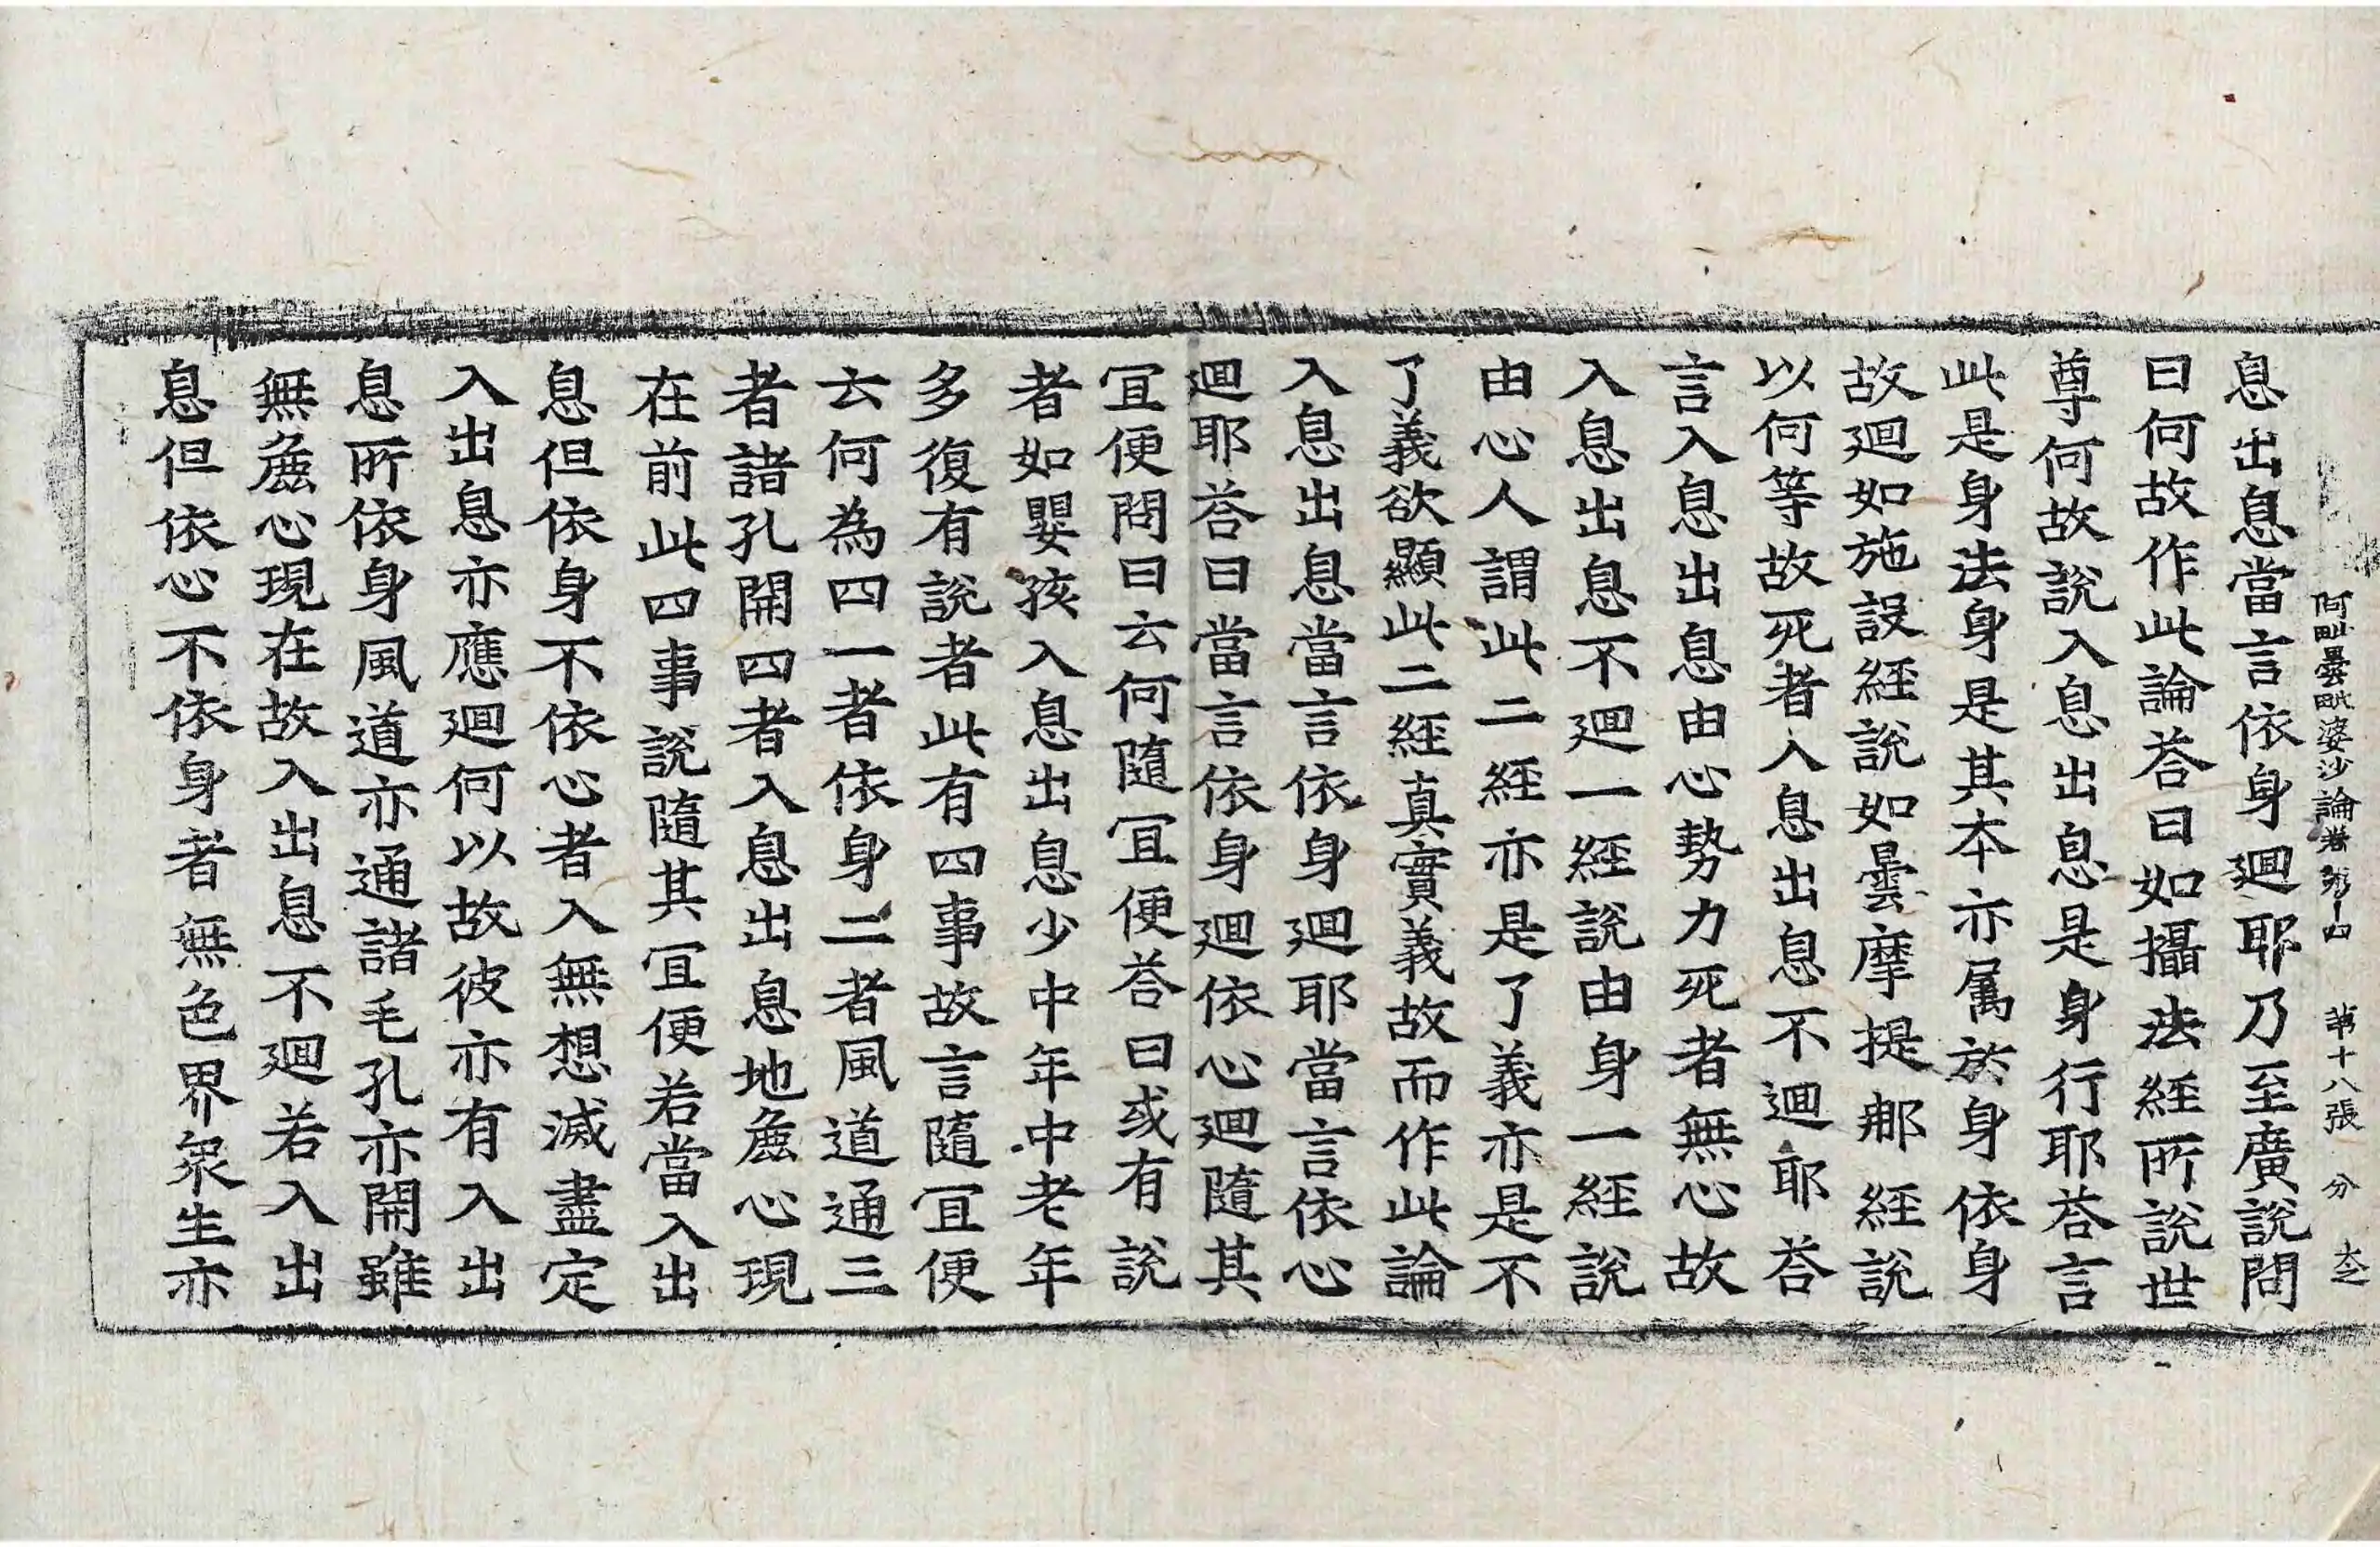 阿毗曇毗婆沙論卷第十四 第十八張 分
息出息當言依身廻耶乃至廣說問
曰何故作此論荅曰如攝法經所說世
尊何故說入息出息是身行耶荅言
此是身法身是其本亦属於身依身
故廻如施設經說如曇摩提那經說
以何等故死者入息出息不廻耶荅
言入息出息由心勢力死者無心故
入息出息不廻一經說由身一經說
由心人謂此二經亦是了義亦是不
了義欲顯此二經真實義故而作此論
入息出息當言依身廻耶當言依心
廻耶荅曰當言依身廻依心廻隨其
冝便問曰云何隨冝便荅曰或有說
者如嬰孩入息出息少中年中老年
多復有說者此有四事故言隨冝便
云何為四一者依身二者風道通三
者諸孔開四者入息出息地麁心現
在前此四事說隨其冝便若當入出
息但依身不依心者入無想滅盡定
入出息亦應廻何以故彼亦有入出
息所依身風道亦通諸毛孔亦開雖
無麁心現在故入出息不廻若入出
息但依心不依身者無色界衆生亦